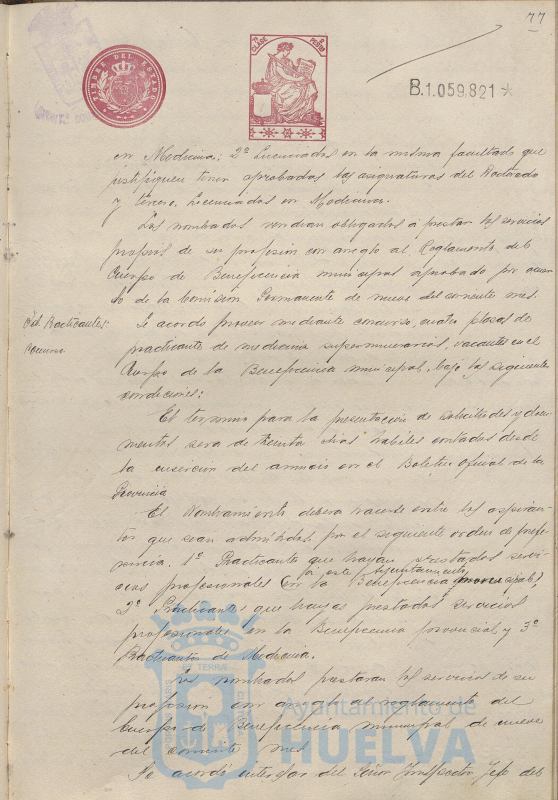 77
TIMBRE DEL ESTADO
7ª CLASE
B.1.059.821 *
en Medicina; 2º Licenciados en la misma facultad que
justifiquen tener aprobadas las asignaturas del Doctorado
y tercero, Licenciados en Medicina.
Los nombrados vendran obligados á prestar los servicios
propios de su profesion con areglo al Reglamento del
Cuerpo de Beneficencia municipal aprobado por acuer
do de la Comision Permanente de nueve del corriente mes.
Id. Practicantes:
Concurso.
Se acordó proveer mediante concurso, cuatro plazas de
practicante de medicina supernumerarios, vacantes en el
Cuerpo de la Beneficencia municipal, bajo las siguientes
condiciones:
El termino para la presentacion de solicitudes y docu
mentos sera de treinta dias habiles contados desde
la insercion del anuncio en el Boletin oficial de la
Provincia
El Nombramiento debera hacerse entre los aspiran-
tes que sean admitidos, por el siguiente orden de prefe-
rencia. 1º Practicantes que hayan prestados servi-
a este Ayuntamiento
cios profesionales en la Beneficencia municipal,
2º Practicantes que hayan prestados servicios
profesionales en la Beneficencia provincial y 3º
Practicantes de Medicina.
Los nombrados prestaran los servicios de su
profesion con areglo al reglamento del
Cuerpo de Beneficencia municipal de nueve
del corriente mes
Se acordó interesar del Señor Inspector Jefe del
Ayuntamiento de
HUELVA